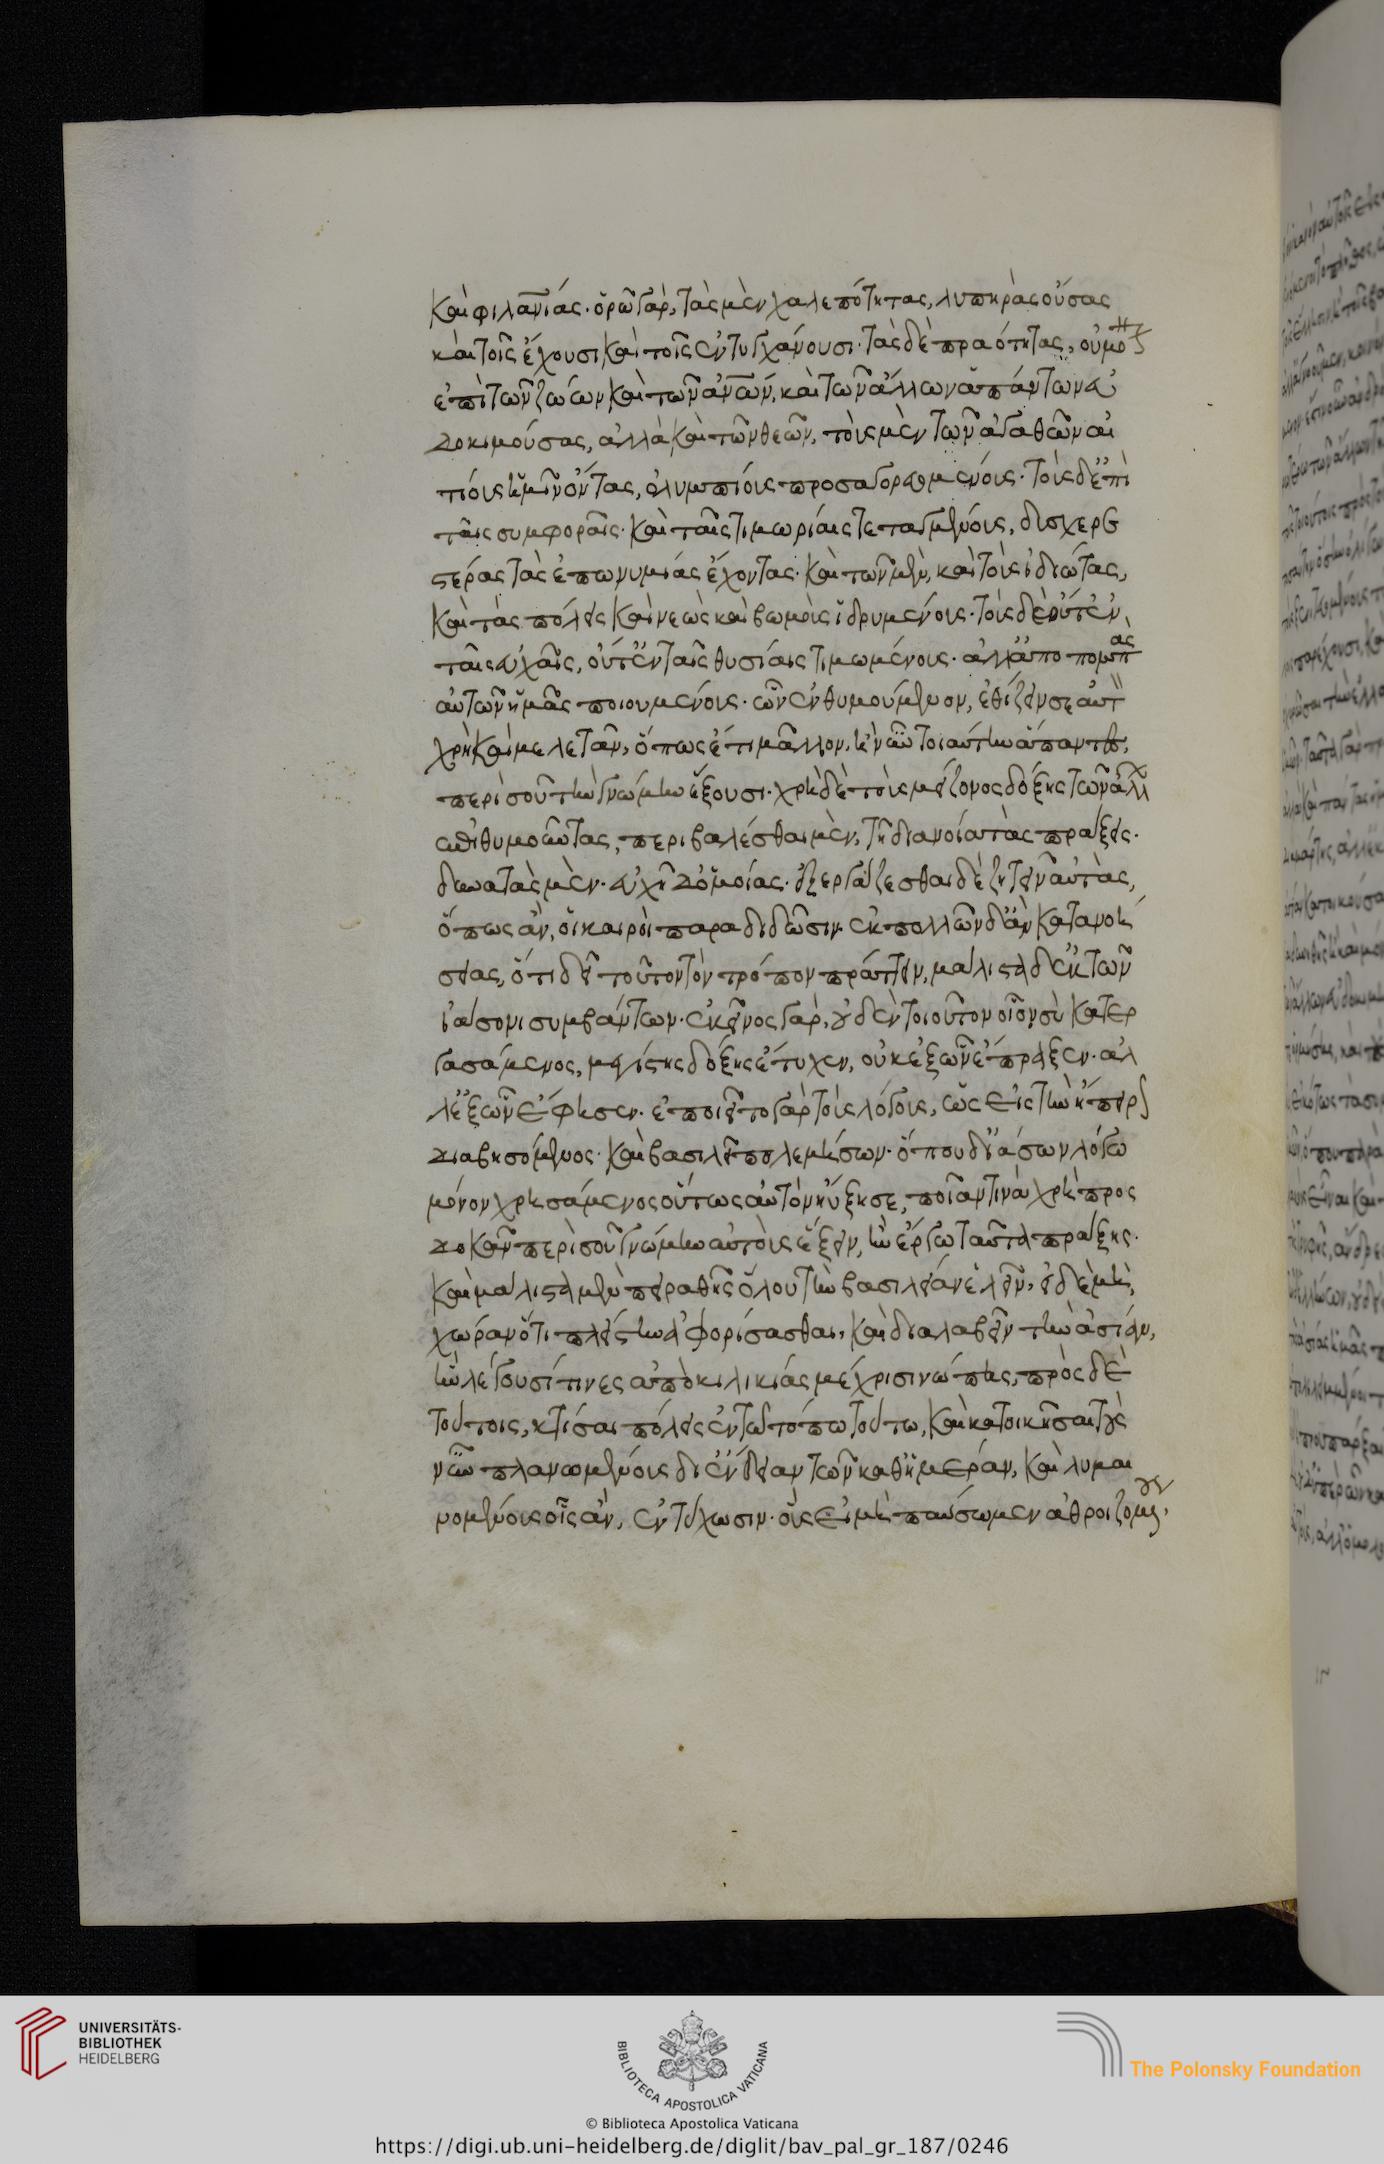 καὶ φιλανίας· ὁρῶ γὰρ, τὰς μὲν χαλεπότητας, λυπηρὰς οὔσας
καὶ τοῖς ἔχουσι καὶ τοῖς ἐντυγχάνουσι· τὰς δὲ πραότητας, οὐ μό
ἐπὶ τῶν ζώων καὶ τῶν ἀνῶν, καὶ τῶν ἄλλων ἁπάντων εὐ
δοκιμούσας, ἀλλὰ καὶ τῶν θεῶν, τοὺς μὲν τῶν ἀγαθῶν αἰ
τίους ἡμῖν ὄντας, ὀλυμπίους προσαγορευομένους· τοὺς δ' ἐπὶ
ταῖς συμφοραῖς· καὶ ταῖς τιμωρίαις τεταγμένους, δυσχερε
στέρας τὰς ἐπωνυμίας ἔχοντας· καὶ τῶν μὲν, καὶ τοὺς ἰδιώτας,
καὶ τὰς πόλεις καὶ νεὼς καὶ βωμοὺς ἱδρυμένους· τοὺς δὲ οὔτ' ἐν
ταῖς εὐχαῖς, οὔτ' ἐν ταῖς θυσίαις τιμωμένους· ἀλλ' ἀποπομπὰς
αὐτῶν ἡμᾶς ποιουμένους· ὧν ἐνθυμούμενον, ἐθίζειν σεαυτ
χρὴ καὶ μελετᾶν, ὅπως ἔτι μᾶλλον, ἢ νῦν τοιαύτην ἅπαντες,
περὶ σοῦ τὴν γνώμην ἕξουσι· χρὴ δὲ τοὺς μείζονος δόξης τῶν ἄλλ
ἐπιθυμοῦντας, περιβαλέσθαι μὲν, τῇ διανοία τὰς πράξεις·
δυνατὰς μὲν· εὐχῇ δ' ὁμοίας· ἐξεργάζεσθαι δὲ ζητεῖν αὐτὰς,
ὅπως ἂν, οἱ καιροὶ παραδιδῶσιν· ἐκ πολλῶν δ' ἂν κατανοή
σειας, ὅτι δεῖ τοῦτον τὸν τρόπον πράττειν, μάλιστα δ' ἐκ τῶν
ἰάσονι συμβάντων· ἐκεῖνος γὰρ, οὐδὲν τοιοῦτον οἷον σὺ κατερ
γασάμενος, μεγίστης δόξης ἔτυχεν, οὐκ ἐξ ὧν ἔπραξεν· ἀλ
λ' ἐξ ὧν ἔφησεν· ἐποιεῖτο γὰρ τοὺς λόγους, ὡς εἰς τὴν ἤπειρ
διαβησόμενος· καὶ βασιλεῖ πολεμήσων· ὅπου δ' ἰάσων λόγω
μόνον χρησάμενος οὕτως αὑτὸν ηὔξησε, ποίαν τινὰ χρὴ προς
δοκᾶν περὶ σοῦ γνώμην αὐτοὺς ἕξειν, ἢν ἔργω ταῦτα πράξης·
καὶ μάλιστα μὲν πειραθῆς ὅλου τὴν βασιλείαν ἑλεῖν, εἰ δὲ μὴ,
χώραν ὅτι πλείστην ἀφορίσασθαι, καὶ διαλαβεῖν τὴν ἀσίαν,
ἣν λέγουσί τινες ἀπὸ κιλικίας μέχρι σινώπης, πρὸς δὲ
τούτοις, κτίσαι πόλεις ἐν τῶ τόπω τούτω, καὶ κατοικῆσαι τοὺς
νῦν πλανωμένους δι' ἔνδειαν τῶν καθ' ἡμέραν, καὶ λυμαι
νομένους οἷς ἂν, ἐντύχωσιν· οὓς εἰ μὴ παύσωμεν ἀθροιζομέν,
UNIVERSITÄTS-
BIBLIOTHEK
HEIDELBERG
BIBLIOTECA APOSTOLICA VATICANA
The Polonsky Foundation
© Biblioteca Apostolica Vaticana
https://digi.ub.uni-heidelberg.de/diglit/bav_pal_gr_187/0246